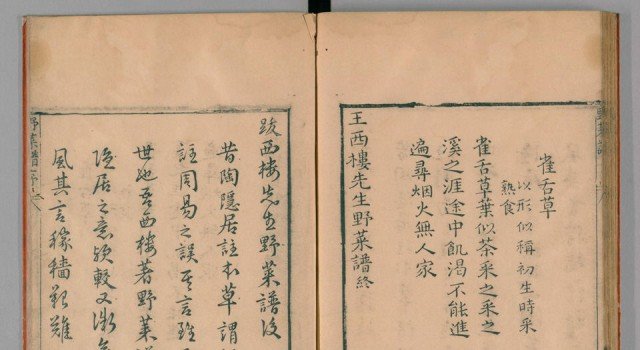 雀舌草
以形似稱初生時采
熟食
雀舌草葉似茶采之采之
溪之涯途中飢渴不能進
遍尋烟火無人家
王西樓先生野菜譜終
跋西樓先生野菜譜後
昔陶隱居註本草謂
註周易之誤其言雖
世也吾西樓著野菜譜
隱居之意頗較又微
風其言稼穡艱難